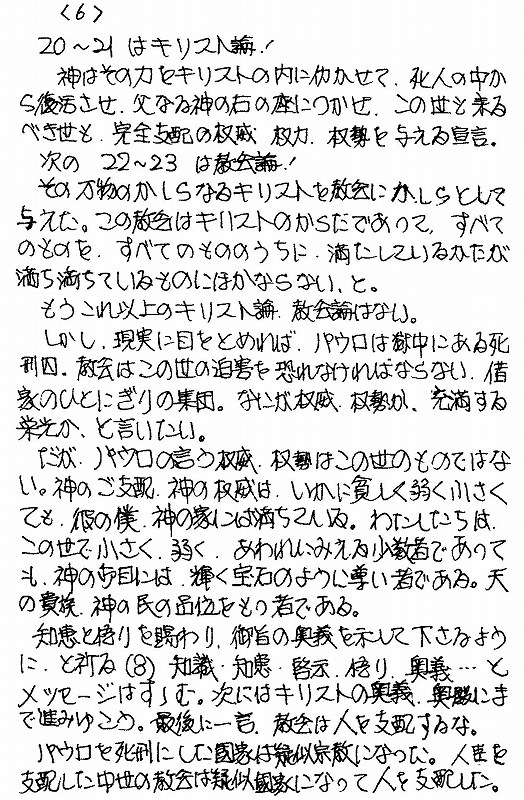 〈6〉
20～21 はキリスト論！
神はその力をキリストの内に働かせて、死人の中か
ら復活させ、父なる神の右の座につかせ、この世と来る
べき世も、完全支配の权威 权力、权勢を与える宣言。
次の 22～23 は教会論！
その万物のかしらなるキリストを教会にかしらとして
与えた。この教会はキリストのからだであって、すべて
のものを、すべてのもののうちに、満たしているかたが
満ち満ちているものにほかならない、と。
もうこれ以上のキリスト論、教会論はない。
しかし、現実に目をとめれば、パウロは獄中にある死
刑囚。教会はこの世の迫害を恐れなければならない、借
家のひとにぎりの集団。なにが权威、权勢か、充満する
栄光か、と言いたい。
だが、パウロの言う权威、权勢はこの世のものではな
い。神のご支配、神の权威は、いかに貧しく弱く小さく
ても、彼の僕、神の家には満ちている。わたしたちは、
この世で小さく、弱く、あわれにみえる少数者であって
も、神の御目には、輝く宝石のように尊い者である。天
の貴族、神の民の品位をもつ者である。
知恵と悟りを賜わり、御旨の奥義を示して下さるよう
に、と祈る(8) 知識・知恵・啓示・悟り、奥義…と
メッセージはすすむ。次にはキリストの奥義、奥勝にま
で進みゆこう。最後に一言、教会は人を支配するな。
パウロを死刑にした国家は疑似宗教になった。人世を
支配した中世の教会は疑似国家になって人を支配した。